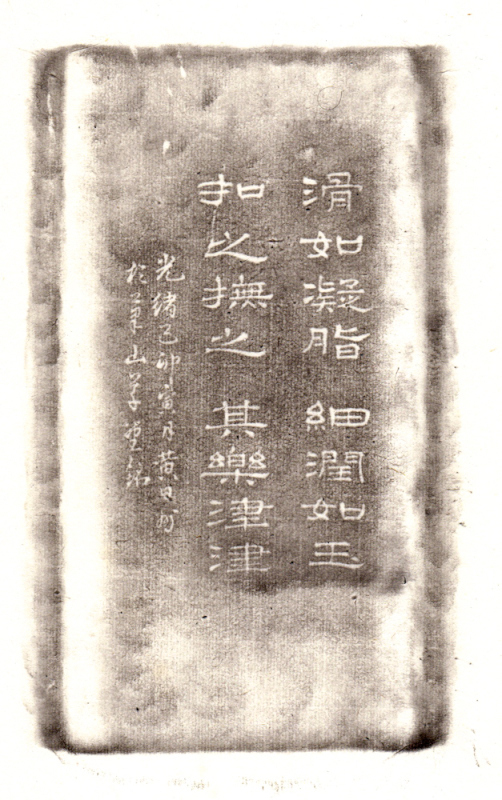 滑如凝脂 細潤如玉
扣之撫之 其樂津津
光緒己卯寅月黄
山草堂銘